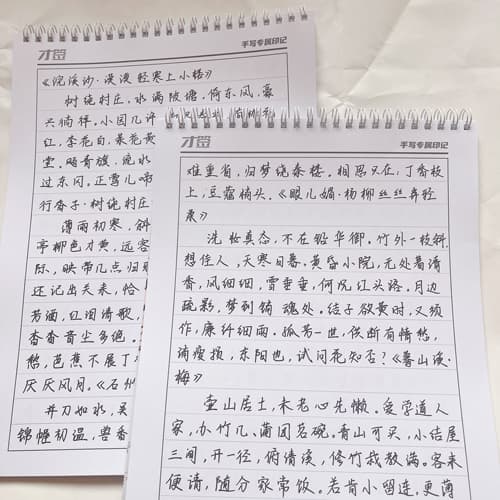 才酉
手写专属印记
《浣溪沙·漠漠轻寒上小楼》
树绕村庄，水满陂塘。倚东风，豪
兴徜徉。小园几许
红，李花白，菜花黄
堂。飏青旗，流水
过东冈。正莺儿啼
行香子·树绕村庄
薄雨初寒，斜
亭柳色才黄，远客
际，映带几点归鸿
还记出关来，恰
芳酒，红泪清歌，
杳杳音尘多绝。
愁，芭蕉不展丁
厌厌风月。《石州
并刀如水，吴
锦幄初温，兽香
才酉
手写专属印记
难重省，归梦绕秦楼。相思只在，丁香枝
上，豆蔻梢头。《眼儿媚·杨柳丝丝弄轻
柔》
洗妆真态，不在铅华御。竹外一枝斜，
想佳人，天寒日暮。黄昏小院，无处着清
香，风细细，雪垂垂，何况江头路。月边
疏影，梦到销魂处。结子欲黄时，又须
作，廉纤细雨。孤芳一世，供断有情愁，
消瘦损，东阳也，试问花知否？《蓦山溪·
梅》
壶山居士，未老心先懒。爱学道人
家，办竹几、蒲团茗碗。青山可买，小结屋
三间，开一径，俯清溪，修竹栽教满。客来
便请，随分家常饭。若肯小留连，更薄